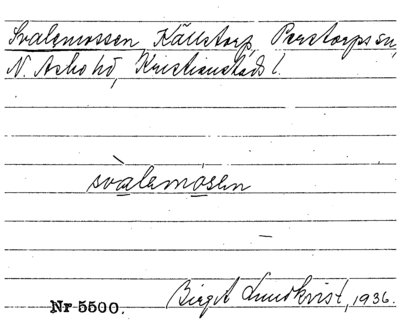 Svalemossen, Källstorp, Perstorps sn,
N. Asbo hd, Kristianstads l.
svàlemósen
Birgit Lundkvist, 1936.
Nr 5500.